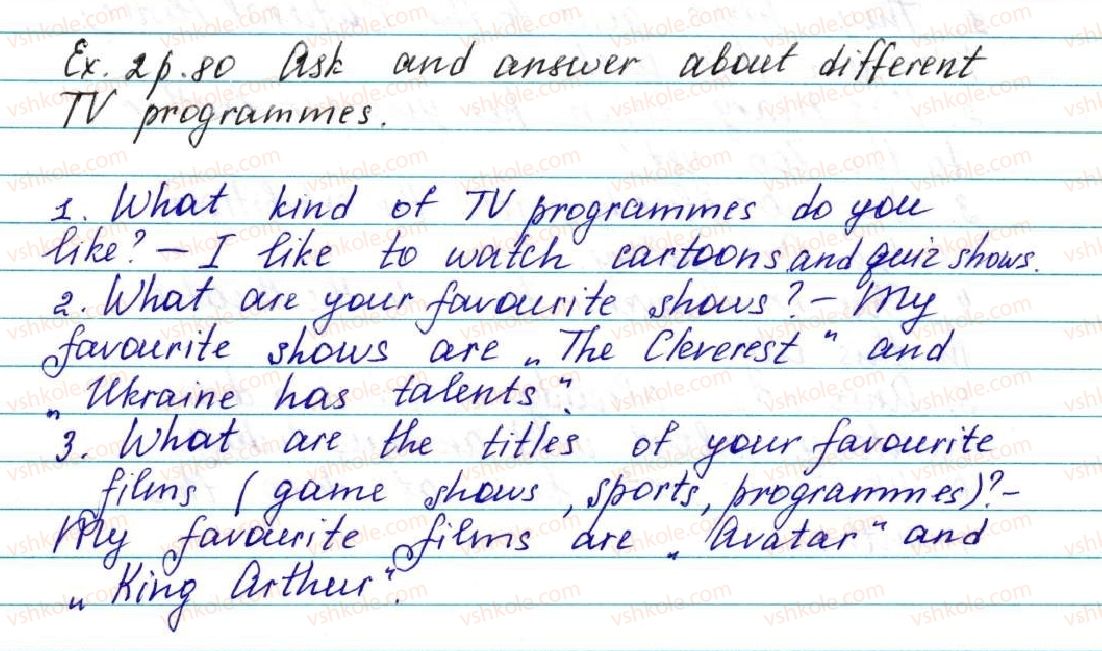 Ex. 2 p. 80 Ask and answer about different
TV programmes.
1. What kind of TV programmes do you
like? – I like to watch cartoons and quiz shows.
2. What are your favourite shows? – My
favourite shows are „The Cleverest" and
„Ukraine has talents".
3. What are the titles of your favourite
films (game shows, sports, programmes)? –
My favourite films are „Avatar" and
„King Arthur".